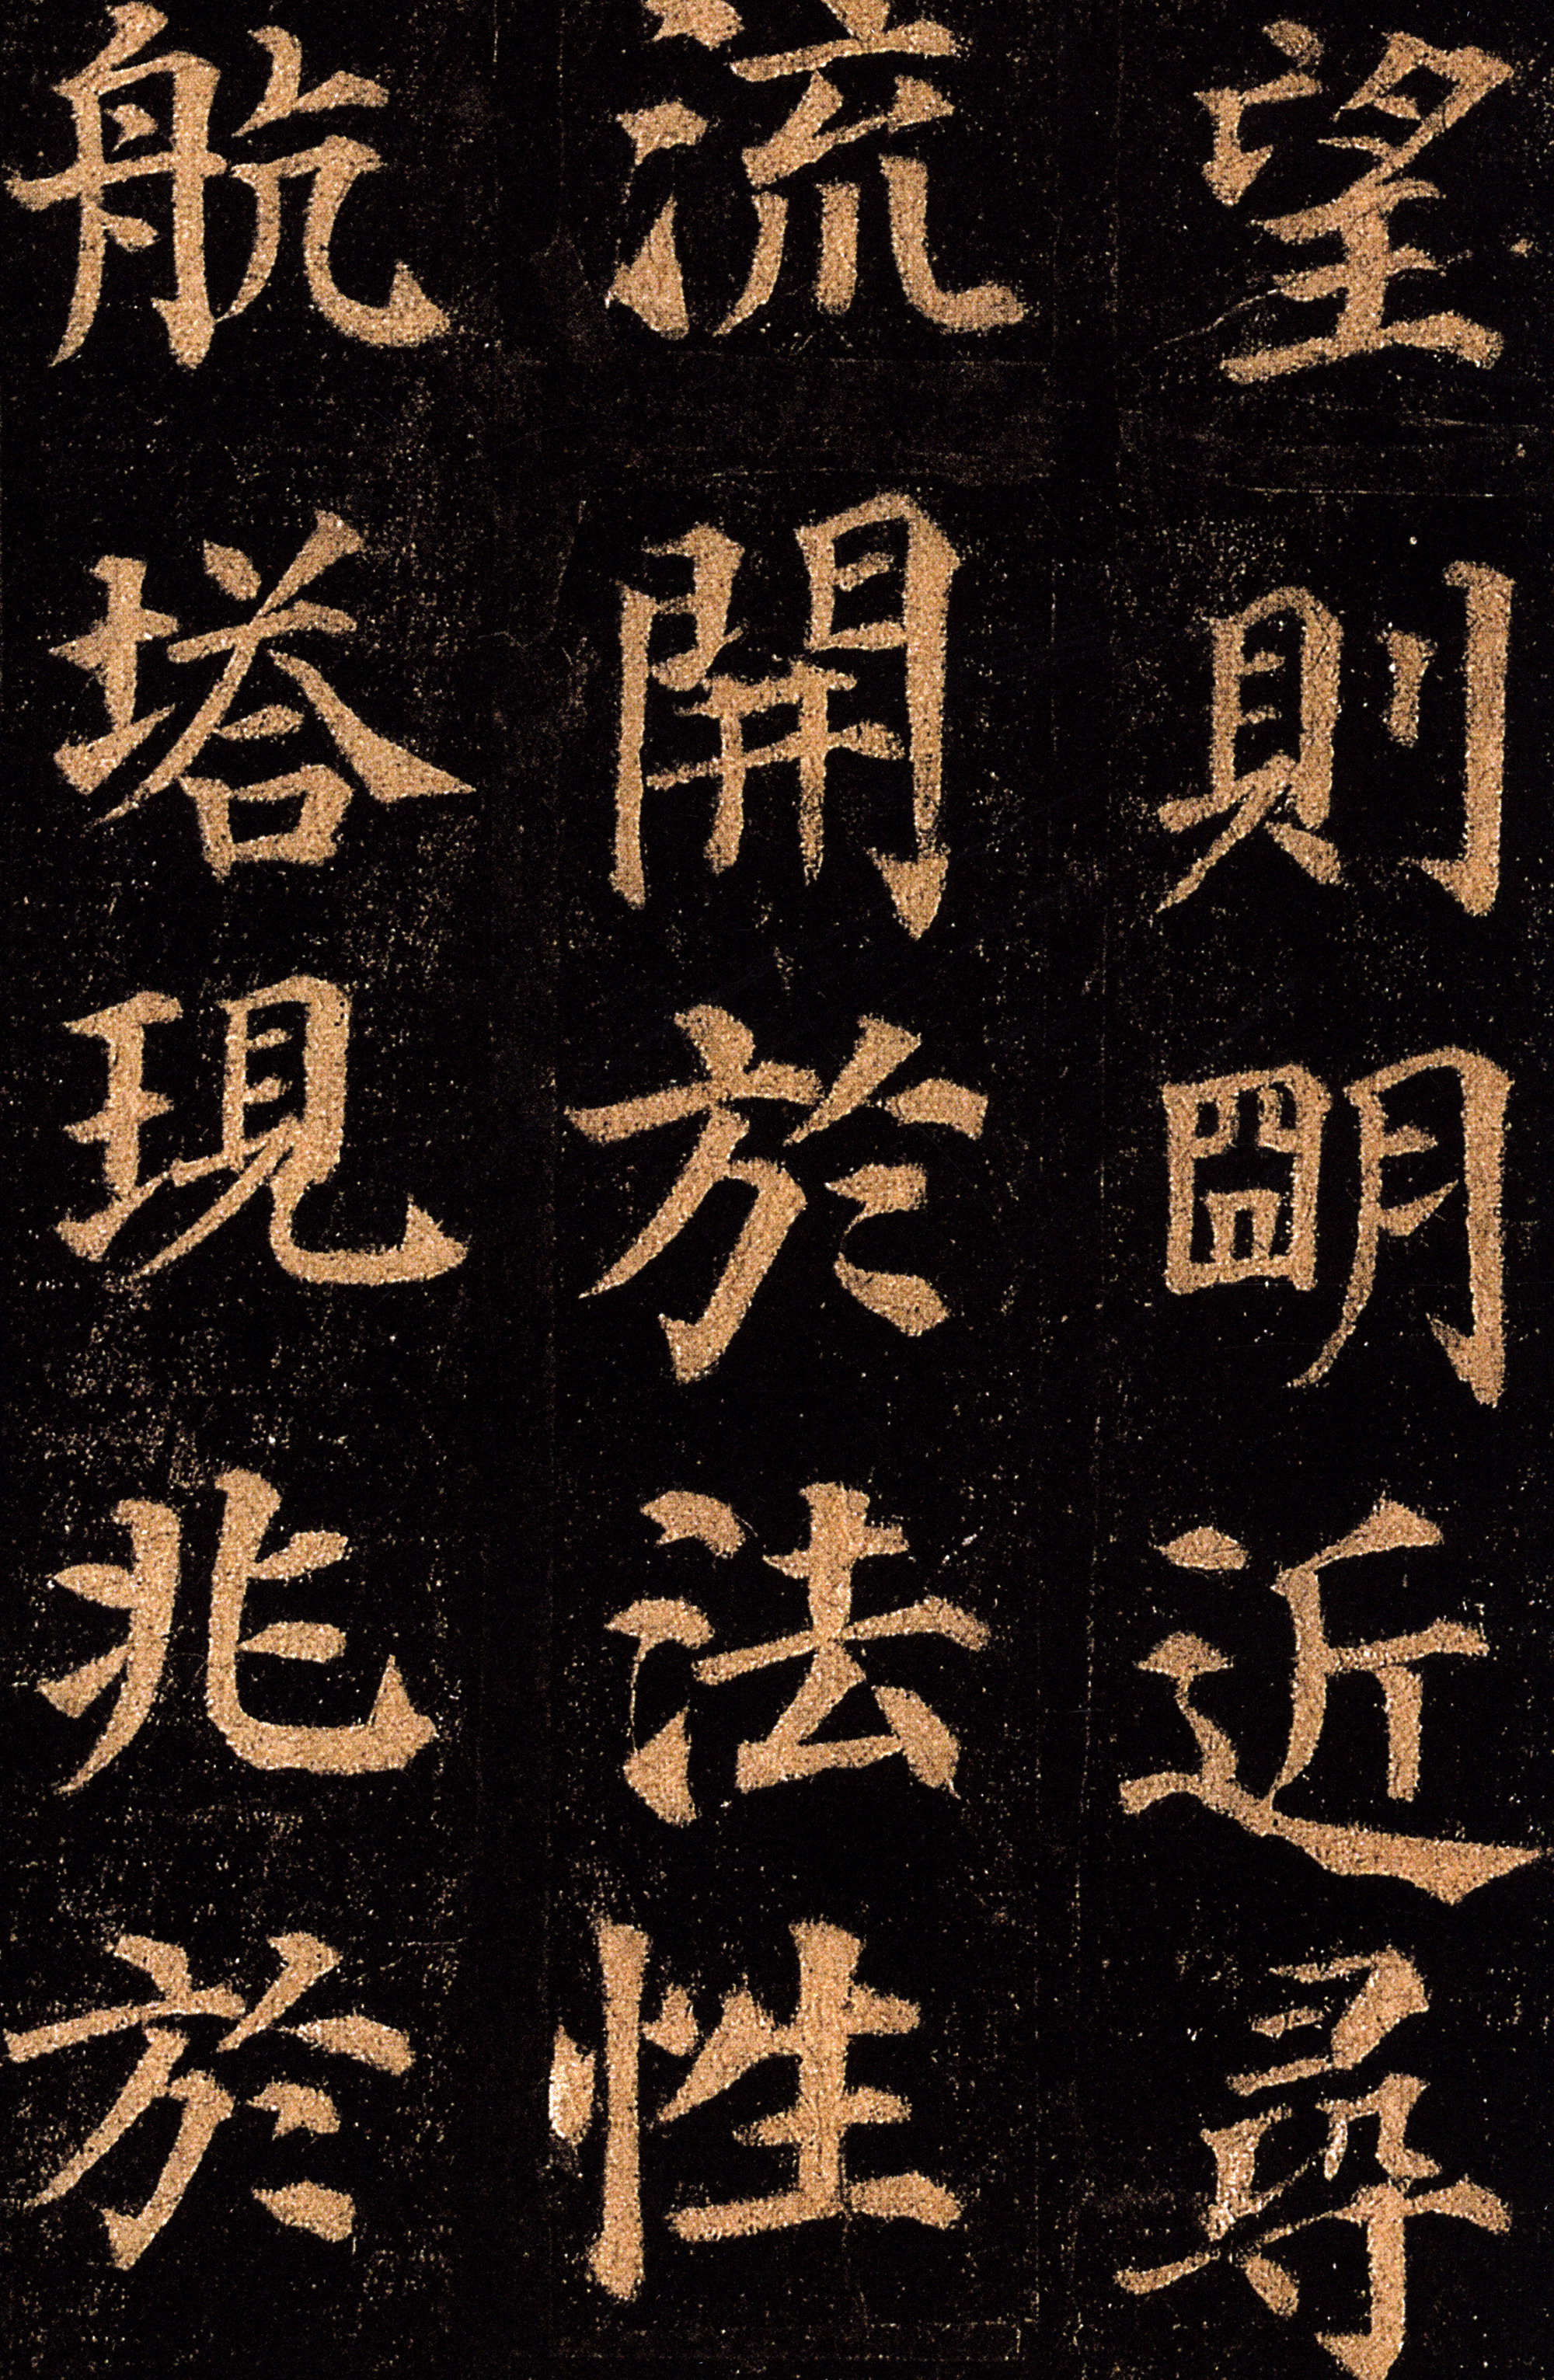 望則朙近尋
流開於法性
航塔現兆於